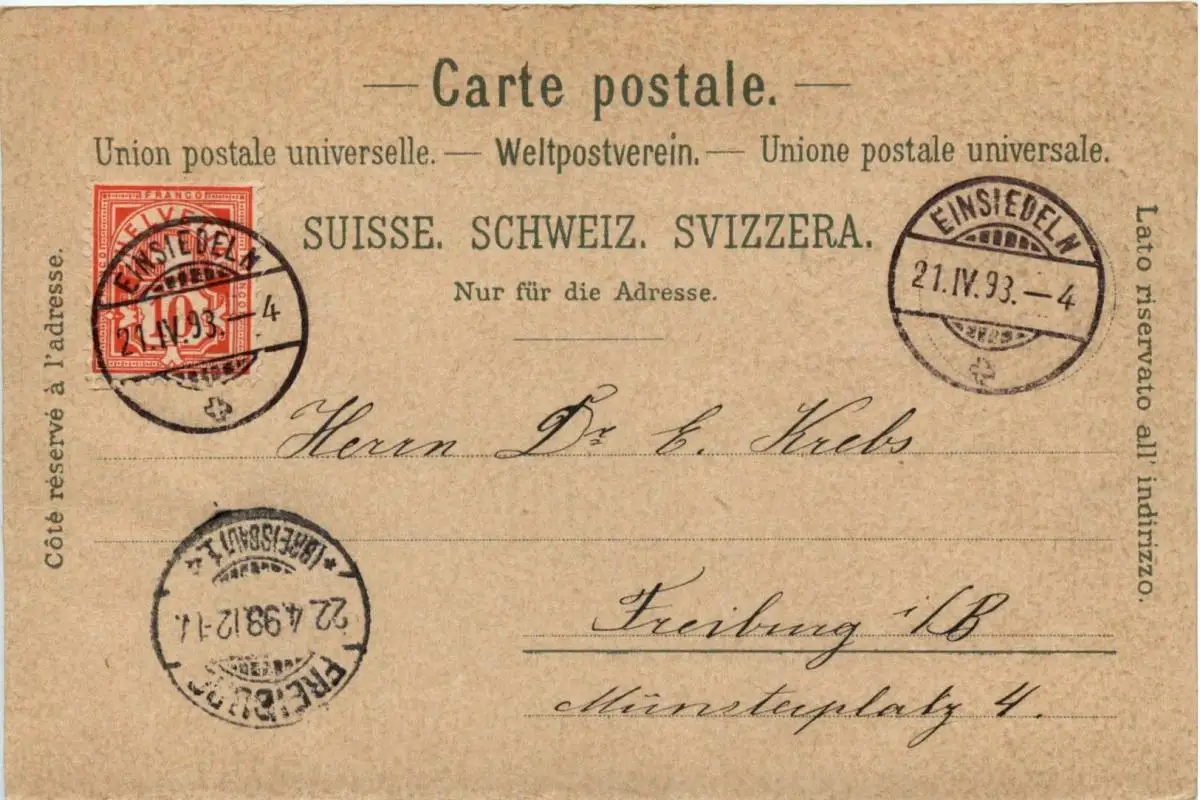 Carte postale.
Union postale universelle. — Weltpostverein. — Unione postale universale.
SUISSE. SCHWEIZ. SVIZZERA.
Nur für die Adresse.
Côté réservé à l'adresse.
Lato riservato all' indirizzo.
FRANCO
HELVE
10
EINSIEDELN
21.IV.93.–4
EINSIEDELN
21.IV.93.–4
Herrn Dr E. Krebs
Freiburg i/B
Münsterplatz 4.
FREIBURG
22.4.93.12-1
* (BREISGAU) 1.